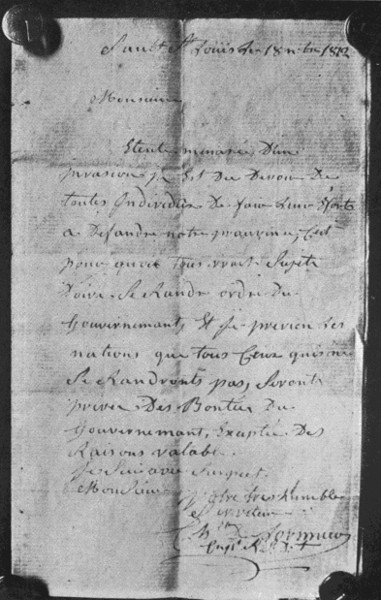 Sault St Louis Le 18 nbre 1812
Monsieur
Etent menacé D'un
invasion je Est Du Devoir De
toutes Individus De faire Leur Effort
a Defandre notre province, Cest
pour quoit tous vrais Sujets
Doive Se Randre ordre Du
Gouvernement, Et je previen Les
nations que tous Ceux qui ne
Se Randronts pas, Seronts
privée Des Bontée Du
Gouvernement, Exceptée Des
Raisons valabe
Je Suis avec Respect
Monsieur
Votre tres humble
Serviteur
Lorimier
Capt